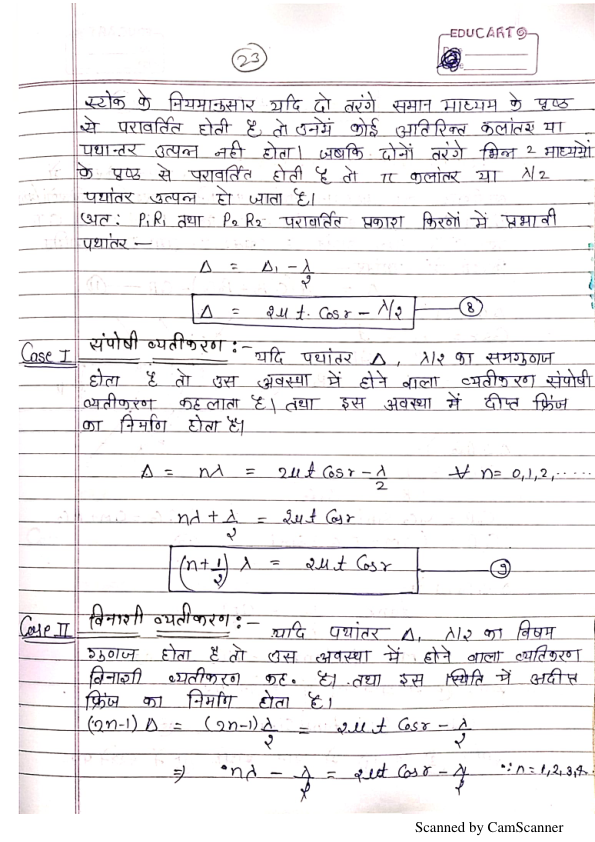 EDUCART
23
स्टोक के नियमानुसार यदि दो तरंगे समान माध्यम के पृष्ठ
से परावर्तित होती है तो उनमें कोई अतिरिक्त कलांतर या
पथान्तर उत्पन्न नही होता। जबकि दोनों तरंगे भिन्न 2 माध्यमों
के पृष्ठ से परावर्तित होती है तो π कलांतर या λ/2
पथांतर उत्पन्न हो जाता है।
अतः P₁R₁ तथा P₂R₂ परावर्तित प्रकाश किरणों में प्रभावी
पथांतर —
Δ = Δ₁ - λ/2
Δ = 2μt. Cosr - λ/2 — 8
Case I संपोषी व्यतीकरण :- यदि पथांतर Δ, λ/2 का समगुणज
होता है तो उस अवस्था में होने वाला व्यतीकरण संपोषी
व्यतीकरण कहलाता है। तथा इस अवस्था में दीप्त फ्रिंज
का निर्माण होता है।
Δ = nλ = 2μt Cosr - λ/2 ∀ n= 0,1,2,......
nλ + λ/2 = 2μt Cosr
(n+1/2) λ = 2μt Cosr — 9
Case II विनाशी व्यतीकरण :- यदि पथांतर Δ, λ/2 का विषम
गुणज होता है तो उस अवस्था में होने वाला व्यतिकरण
विनाशी व्यतीकरण कह. है। तथा इस स्थिति में अदीप्त
फ्रिंज का निर्माण होता है।
(2n-1) Δ = (2n-1) λ/2 = 2μt Cosr - λ/2
⇒ nλ - λ/2 = 2μt Cosr - λ/2 ∵ n=1,2,3,4..
Scanned by CamScanner